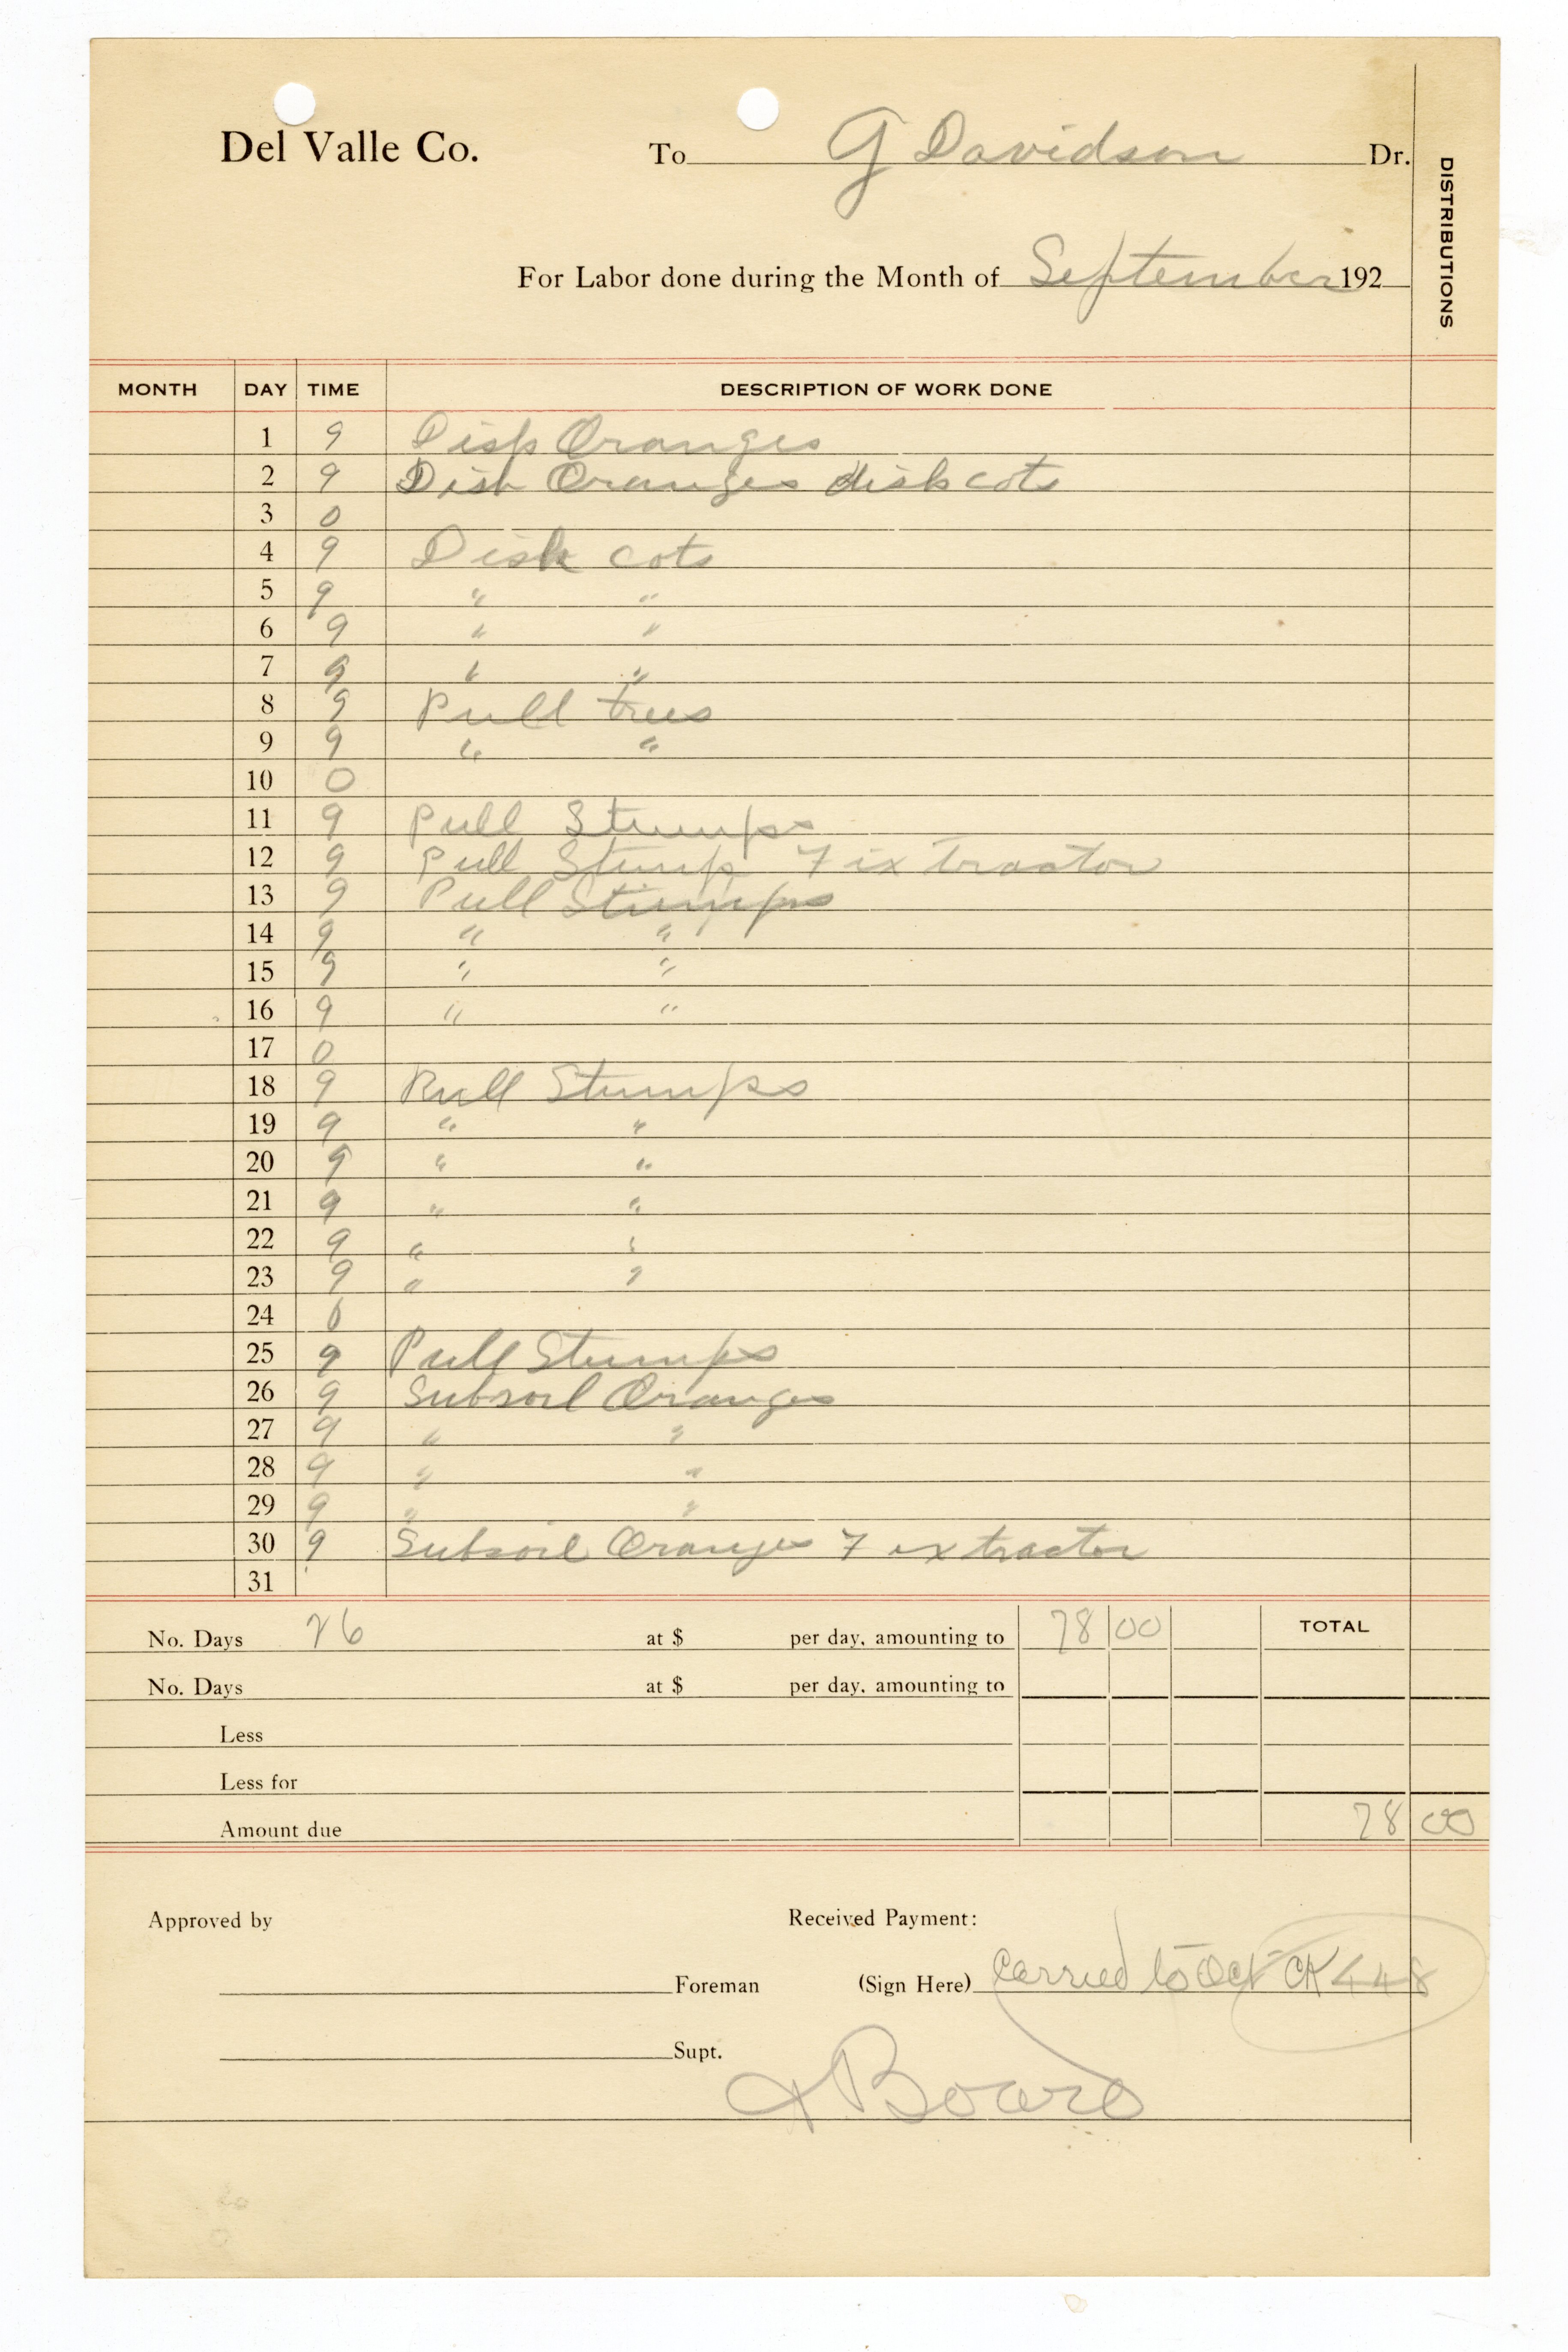 Del Valle Co. To G Davidson Dr.
DISTRIBUTIONS
For Labor done during the Month of September 192
MONTH DAY TIME DESCRIPTION OF WORK DONE
1 9 Disk Oranges
2 9 Disk Oranges disk cots
3 0
4 9 Disk cots
5 9 " "
6 9 " "
7 9 " "
8 9 Pull trees
9 9 " "
10 0
11 9 Pull Stumps
12 9 Pull Stump Fix tractor
13 9 Pull Stumps
14 9 " "
15 9 " "
16 9 " "
17 0
18 9 Pull Stumps
19 9 " "
20 9 " "
21 9 " "
22 9 " "
23 9 " "
24 0
25 9 Pull Stumps
26 9 Subsoil Oranges
27 9 " "
28 9 " "
29 9 " "
30 9 Subsoil Oranges Fix tractor
31
No. Days 26 at $ per day, amounting to 78 00 TOTAL
No. Days at $ per day, amounting to
Less
Less for
Amount due 78 00
Approved by Received Payment:
Foreman (Sign Here) Carried to Oct CK 448
Supt.
Board